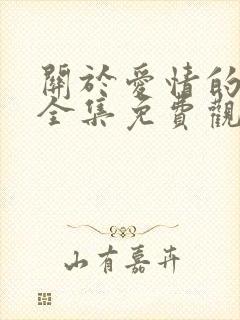 關於愛情的
全集免費觀
山有嘉卉